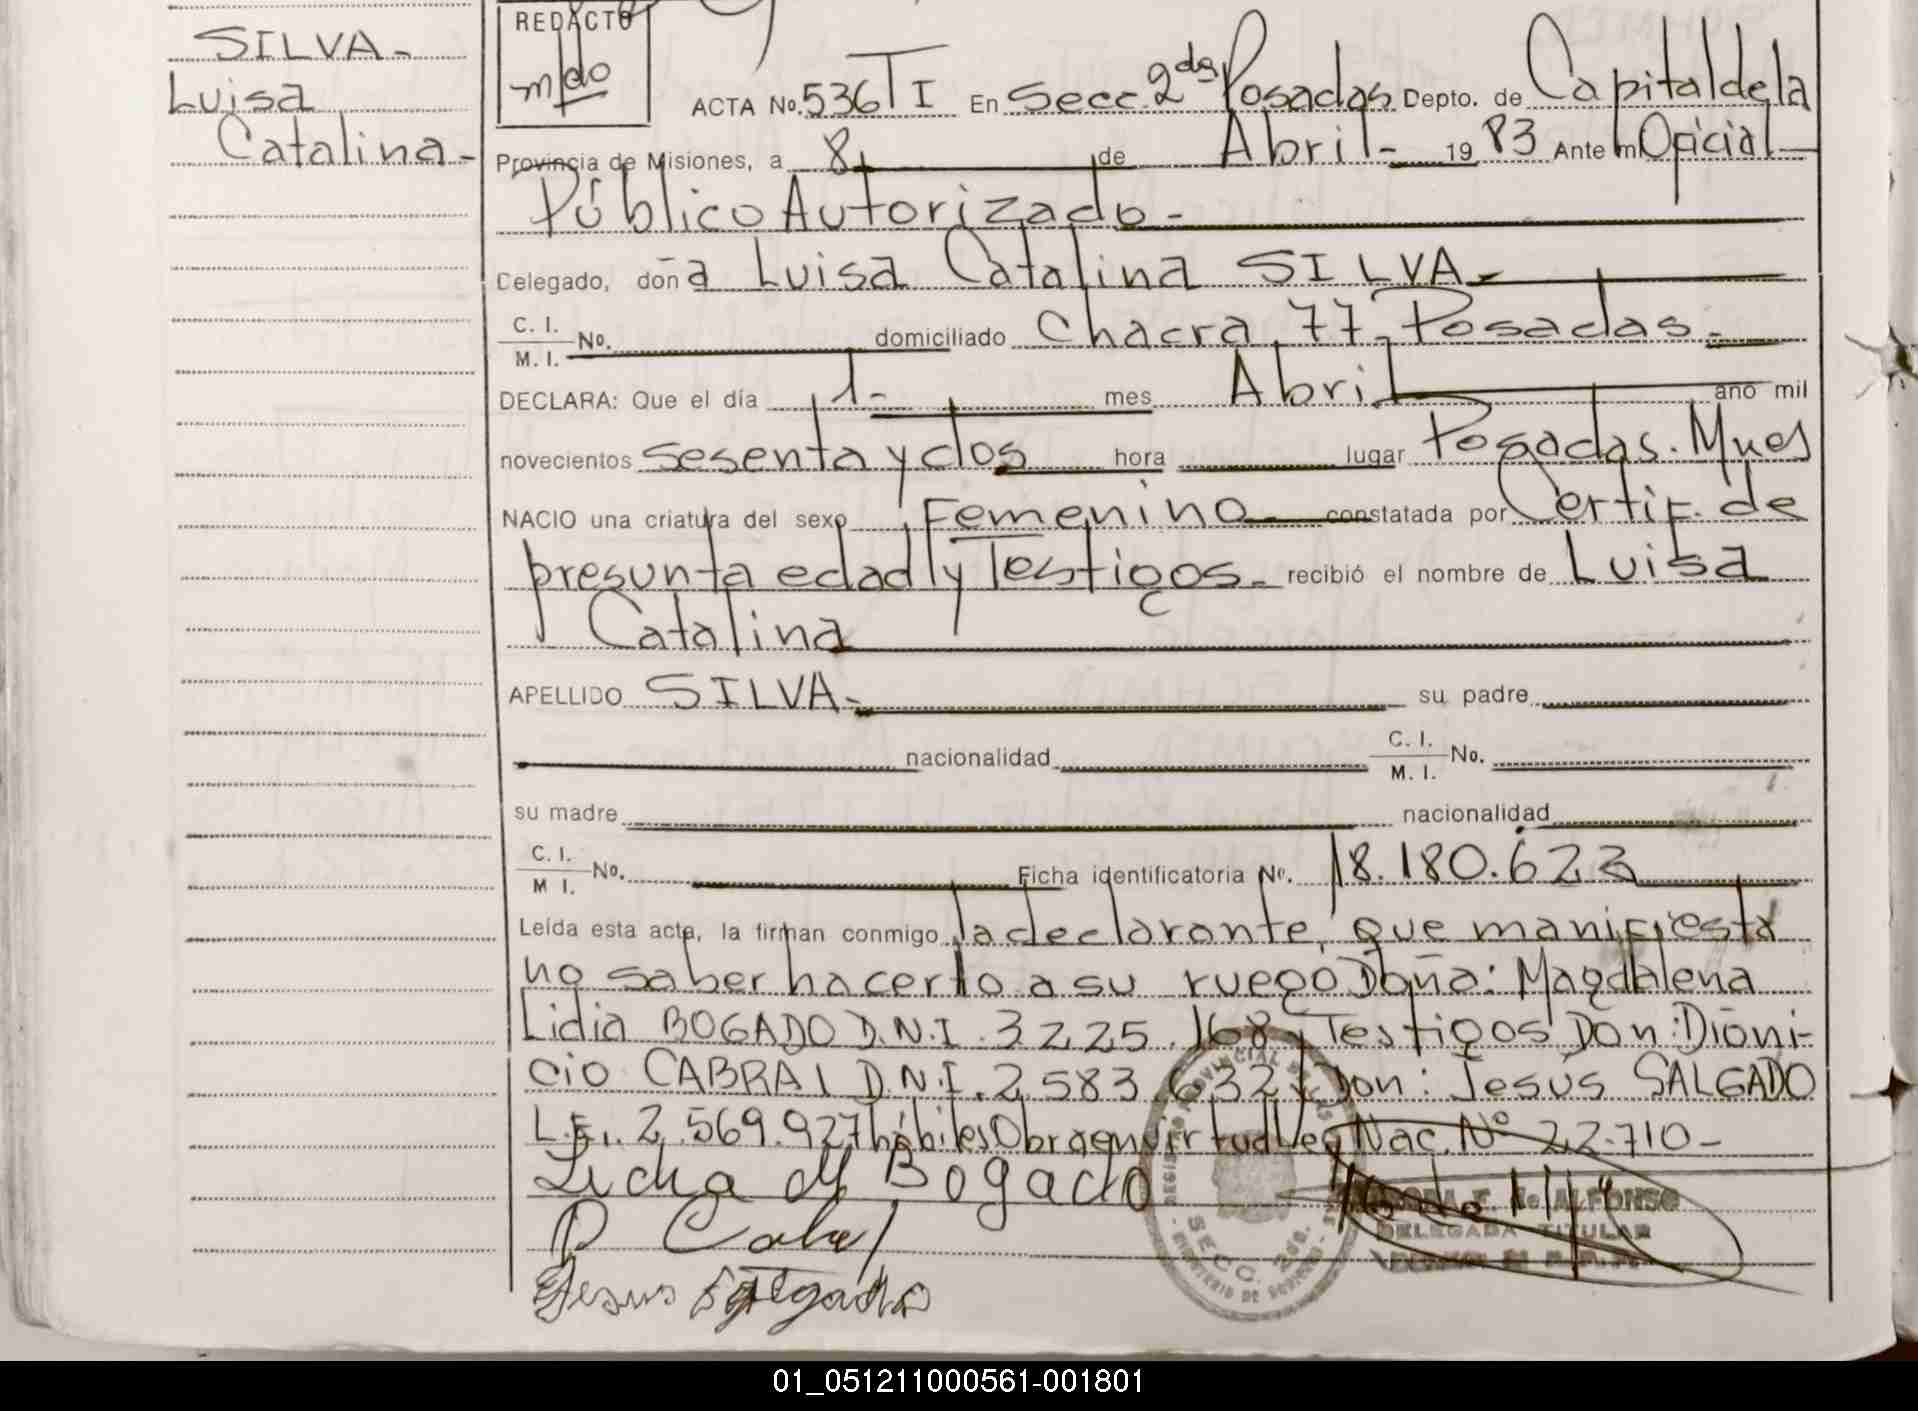 SILVA-
Luisa
Catalina-
REDACTO
ACTA No. 536 T I En Secc. 2da Posadas Depto. de Capital de la
Provincia de Misiones, a 8 de Abril - 19 83 Ante mi Oficial
Público Autorizado -
Celegado, doña Luisa Catalina SILVA -
C. I.
M. I. No. domiciliado Chacra 77 - Posadas -
DECLARA: Que el día 1- mes Abril año mil
novecientos sesenta y dos hora lugar Posadas. Mnes
NACIO una criatura del sexo Femenino - constatada por Certif. de
presunta edad y Testigos - recibió el nombre de Luisa
Catalina
APELLIDO SILVA - su padre
nacionalidad C. I.
M. I. No.
su madre nacionalidad
C. I.
M I. No. Ficha identificatoria No. 18.180.623
Leída esta acta, la firman conmigo la declarante, que manifiesta
no saber hacerlo a su ruego Doña: Magdalena
Lidia BOGADO D.N.I. 3225.168, Testigos Don: Dioni-
cio CABRAL D.N.I. 2.583.632 y Don: Jesús SALGADO
L.E. 2.569.927 hábiles Obra en virtud Ley Nac. Nº 22.710-
Bogado
Jesus Salgado
SECC. 2da.
E. de ALFONSO
DELEGADA TITULAR
01_051211000561-001801